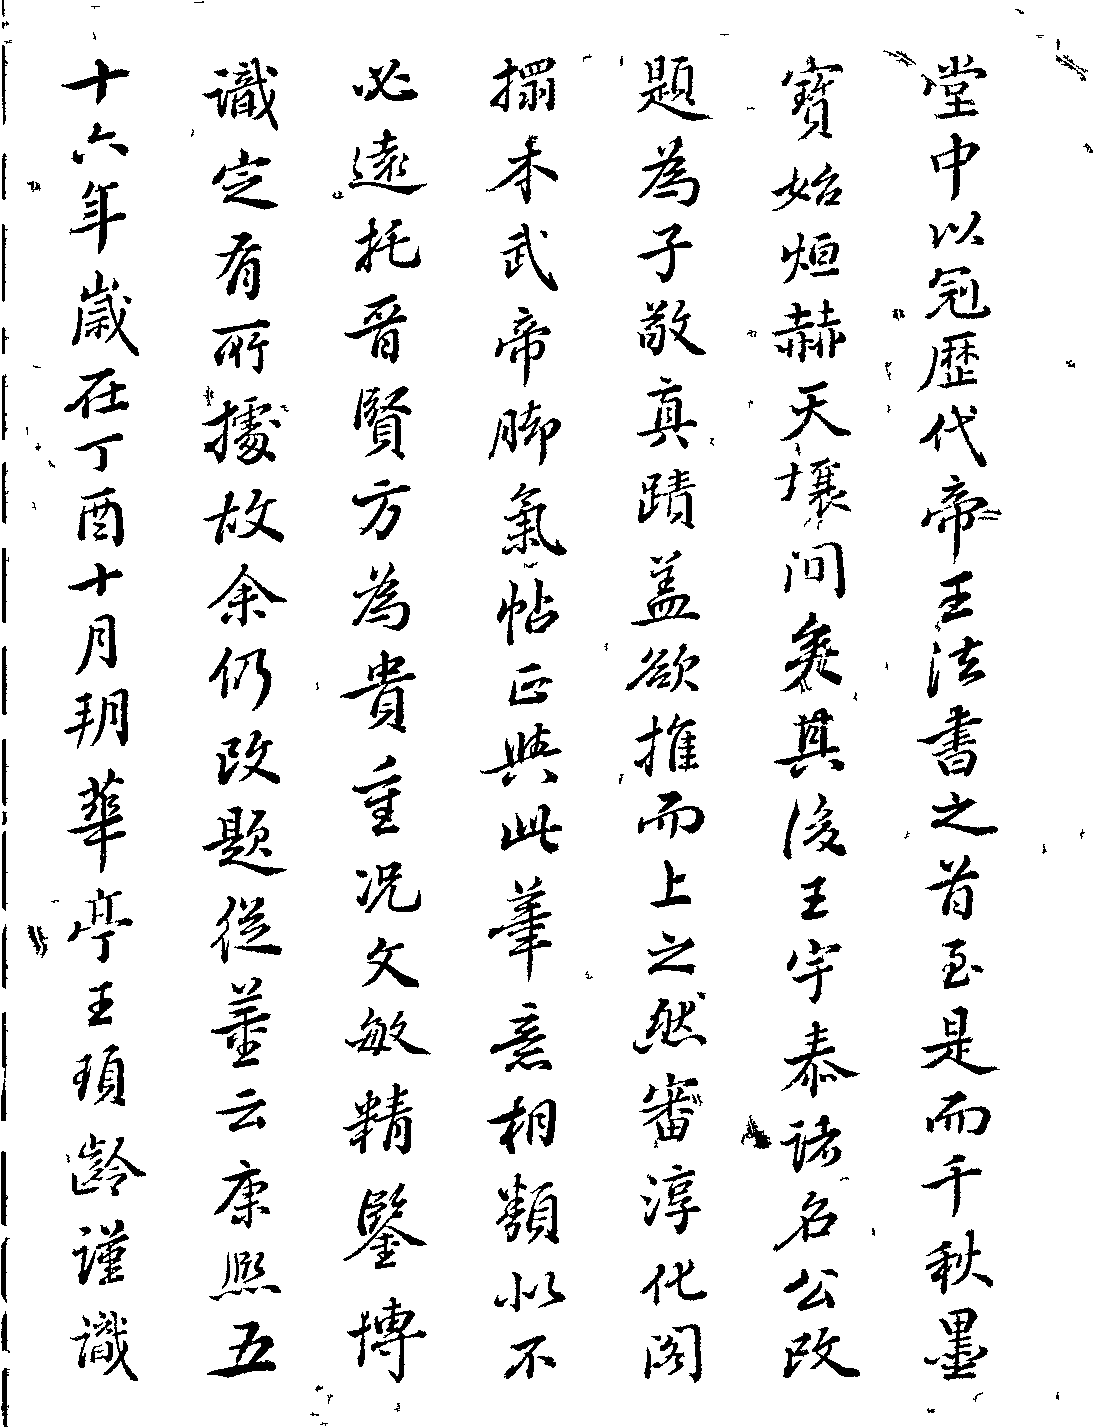 堂中以冠歷代帝王法書之首至是而千秋墨
寶始烜赫天壤間矣其後王宇泰諸名公改
題為子敬真蹟盖欲推而上之然審淳化閣
搨本武帝脚氣帖正與此筆意相類似不
必遠托晉賢方為貴重况文敏精鑒博
識定有所據故余仍改題從舊云康熙五
十六年歲在丁酉十月朔華亭王頊齡謹識